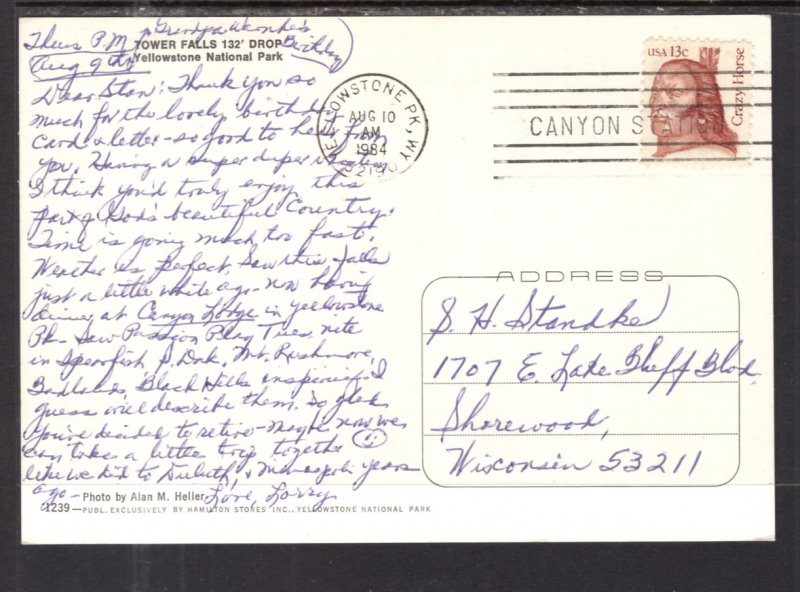 Thurs P.M. Grandpa
Aug 9th Birthday
TOWER FALLS 132' DROP
Yellowstone National Park
Dear Stan: Thank you so
much for the lovely birthday
card & letter - so good to hear from
you. Having a super duper
I think you'd truly enjoy this
part of God's beautiful Country.
Time is going much too fast.
Weather is perfect, Saw this falls
just a little while ago - now having
dinner at Canyon Lodge in Yellowstone
Pk. Saw Passion Play Tues. nite
in Spearfish S. Dak, Mt. Rushmore,
Badlands, Black Hills inspiring I
guess will describe them. So glad
you've decided to retire - maybe now we
can take a little trip together
like we did to Duluth, & Minneapolis years
ago - Photo by Alan M. Heller Love, Lorry
1239 — PUBL. EXCLUSIVELY BY HAMILTON STORES INC., YELLOWSTONE NATIONAL PARK
YELLOWSTONE PK, WY
AUG 10
AM
1984
CANYON STATION
USA 13c
Crazy Horse
ADDRESS
S. H. Standke
1707 E. Lake Bluff Blvd.
Shorewood,
Wisconsin 53211